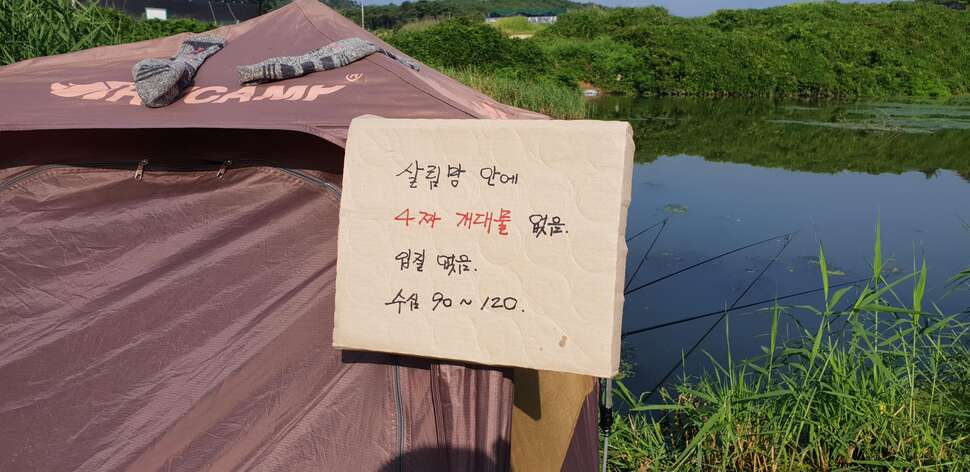 CAMP
살림망 안에
4짜 개대물 없음.
입질 없음.
수심 90~120.